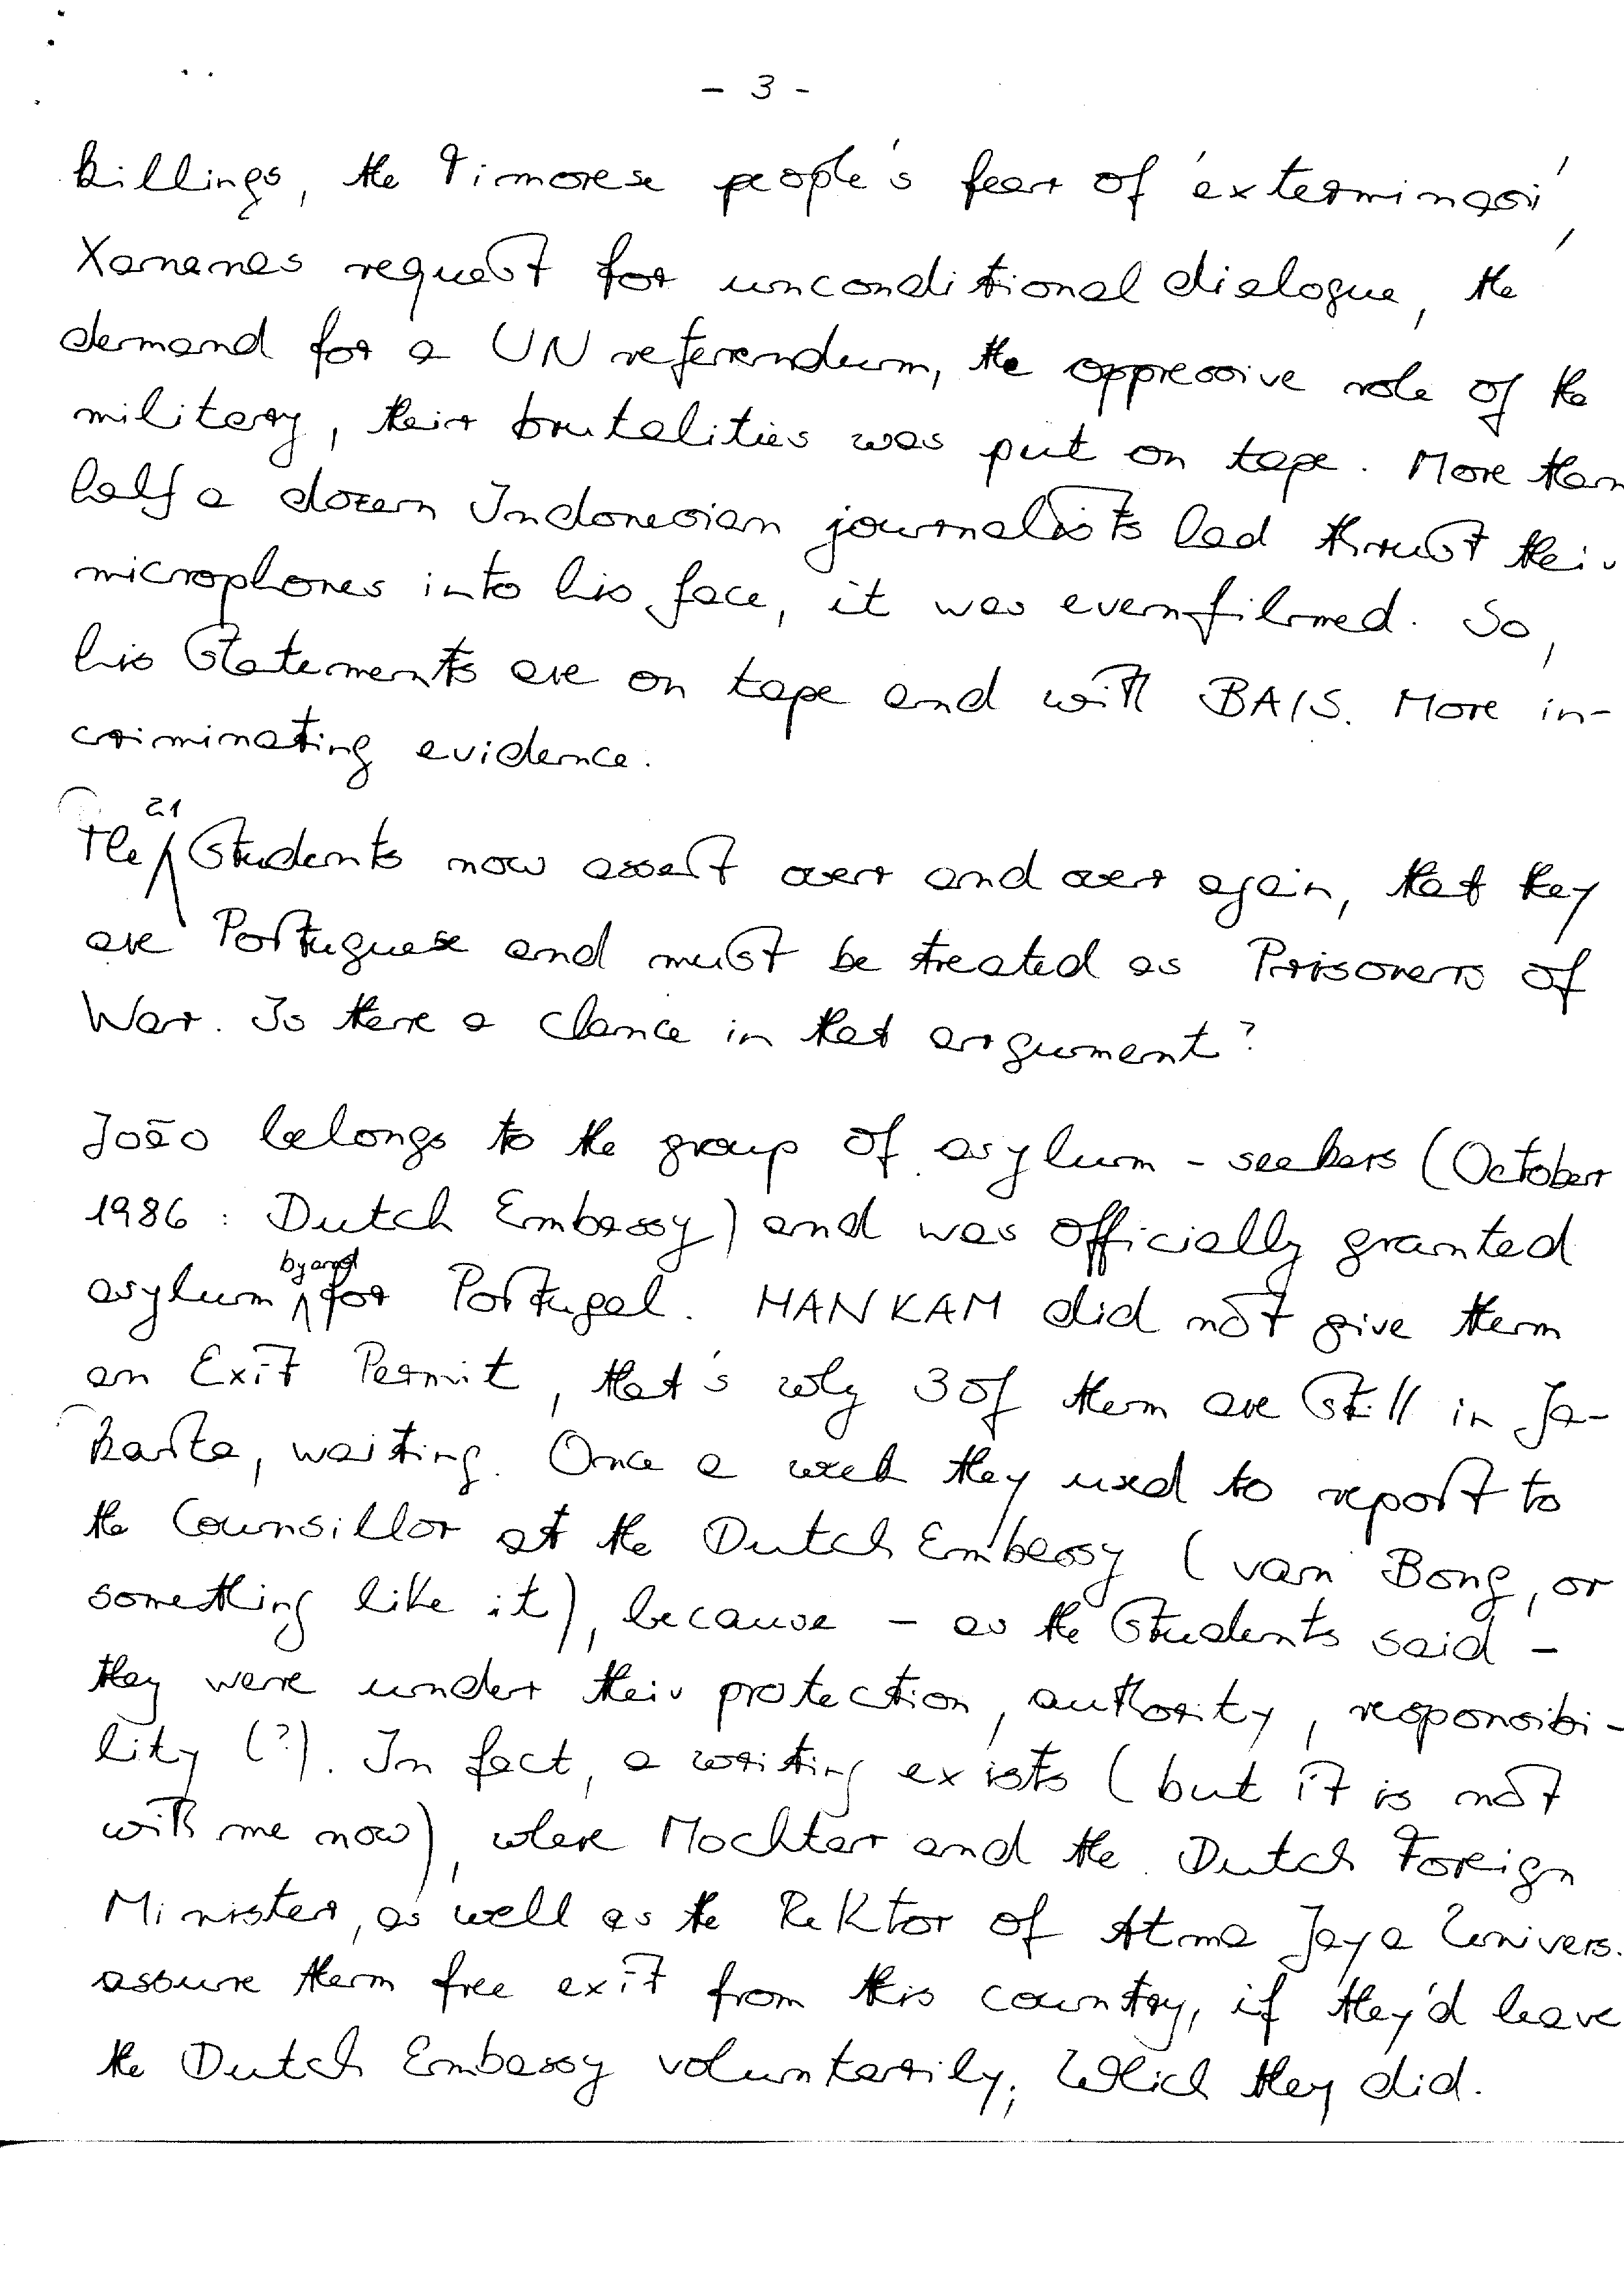 - 3 -
killings, the Timorese people's fear of 'exterminasi',
Xananas request for unconditional dialogue, the
demand for a UN referendum, the oppressive role of the
military, their brutalities was put on tape. More than
half a dozen Indonesian journalists had thrust their
microphones into his face, it was even filmed. So,
his statements are on tape and with BAIS. More in-
criminating evidence.
The 21 students now assert over and over again, that they
are Portuguese and must be treated as Prisoners of
War. Is there a chance in that argument?
João belongs to the group of asylum-seekers (October
1986: Dutch Embassy) and was officially granted
asylum by and for Portugal. HANKAM did not give them
an Exit Permit, that's why 3 of them are still in Ja-
karta, waiting. Once a week they used to report to
the Counsillor at the Dutch Embassy (van Bong, or
something like it), because - as the students said -
they were under their protection, authority, responsibi-
lity (?). In fact, a writing exists (but it is not
with me now), where Mochtar and the Dutch Foreign
Minister, as well as the Rektor of Atma Jaya Univers.
assure them free exit from this country, if they'd leave
the Dutch Embassy voluntarily; Which they did.